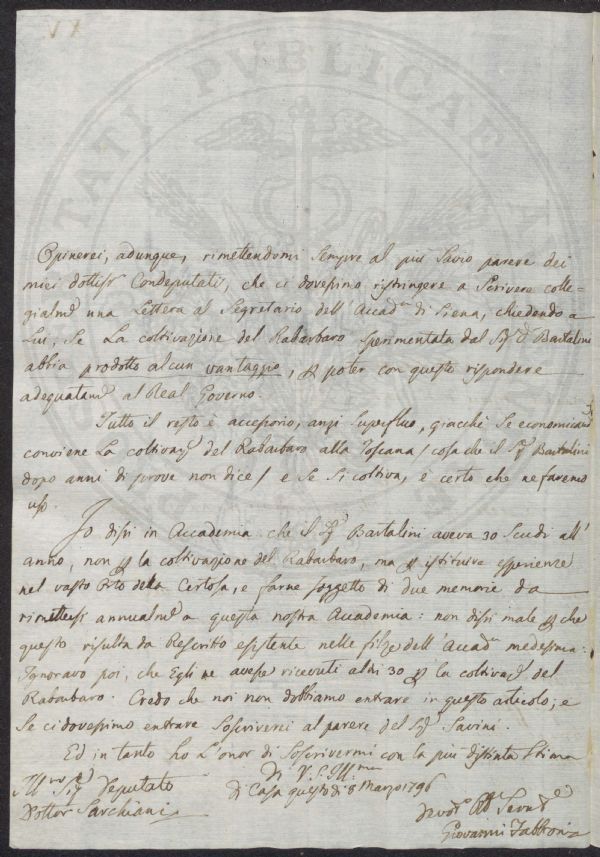 TATI PVBLICAE
Opinerei, adunque, rimettendomi sempre al più savio parere dei
miei dottiss.i Condeputati, che ci dovessimo ristringere a scrivere colle-
gialm.e una Lettera al Segretario dell'Accad.a di Siena, chiedendo a
Lui, se La coltivazione del Rabarbaro sperimentata dal Sig.r D. Bartalini
abbia prodotto alcun vantaggio, p poter con questo rispondere
adeguatam.e al Real Governo.
Tutto il resto è accessorio, anzi superfluo, giacché se economicam.e
conviene La coltivaz.e del Rabarbaro alla Toscana / cosa che il Sig.r Bartalini
dopo anni di prove non dice / e se si coltiva, è certo che ne faremo
uso.
Io dissi in Accademia che il Sig.r Bartalini aveva 30 Scudi all'
anno, non p la coltivazione del Rabarbaro, ma p istituire esperienze
nel vasto Orto della Certosa, e farne soggetto di due memorie da
rimettersi annualm.e a questa nostra Accademia: non dissi male p che
questo risulta da Rescritto esistente nelle filze dell'Accad.a medesima:
Ignoravo poi, che Egli ne avesse ricevuti altri 30 p la coltivaz.e del
Rabarbaro. Credo che noi non dobbiamo entrare in questo articolo; e
se ci dovessimo entrare soscriverei al parere del Sig.r Savini.
Ed in tanto ho L'onor di soscrivermi con la più distinta stima
Di V.S. Ill.ma
Ill.mo Sig.r Deputato
Di Casa questo dì 8 Marzo 1796
Dottor Sarchiani
Giovanni Fabbroni